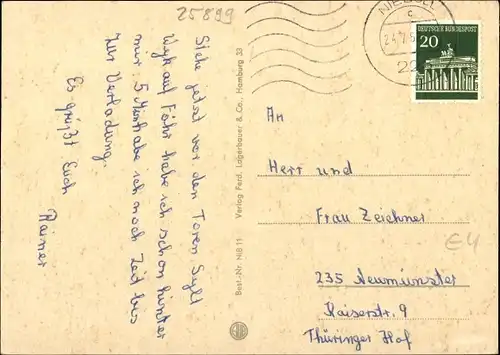 25899
Siehe jetzt vor den Toren Sylt
Wyk auf Föhr habe ich schon hinter
mir. 5 Min habe ich noch Zeit bis
zur Verladung.
Es grüßt Euch
Rainer
Best.-Nr. NIB 11 Verlag Ferd. Lagerbauer & Co., Hamburg 33
NIEBÜLL
c
24.7.
22
DEUTSCHE BUNDESPOST
20
An
Herr und
Frau Zeichner
€4
235 Neumünster
Kaiserstr. 9
Thüringer Hof